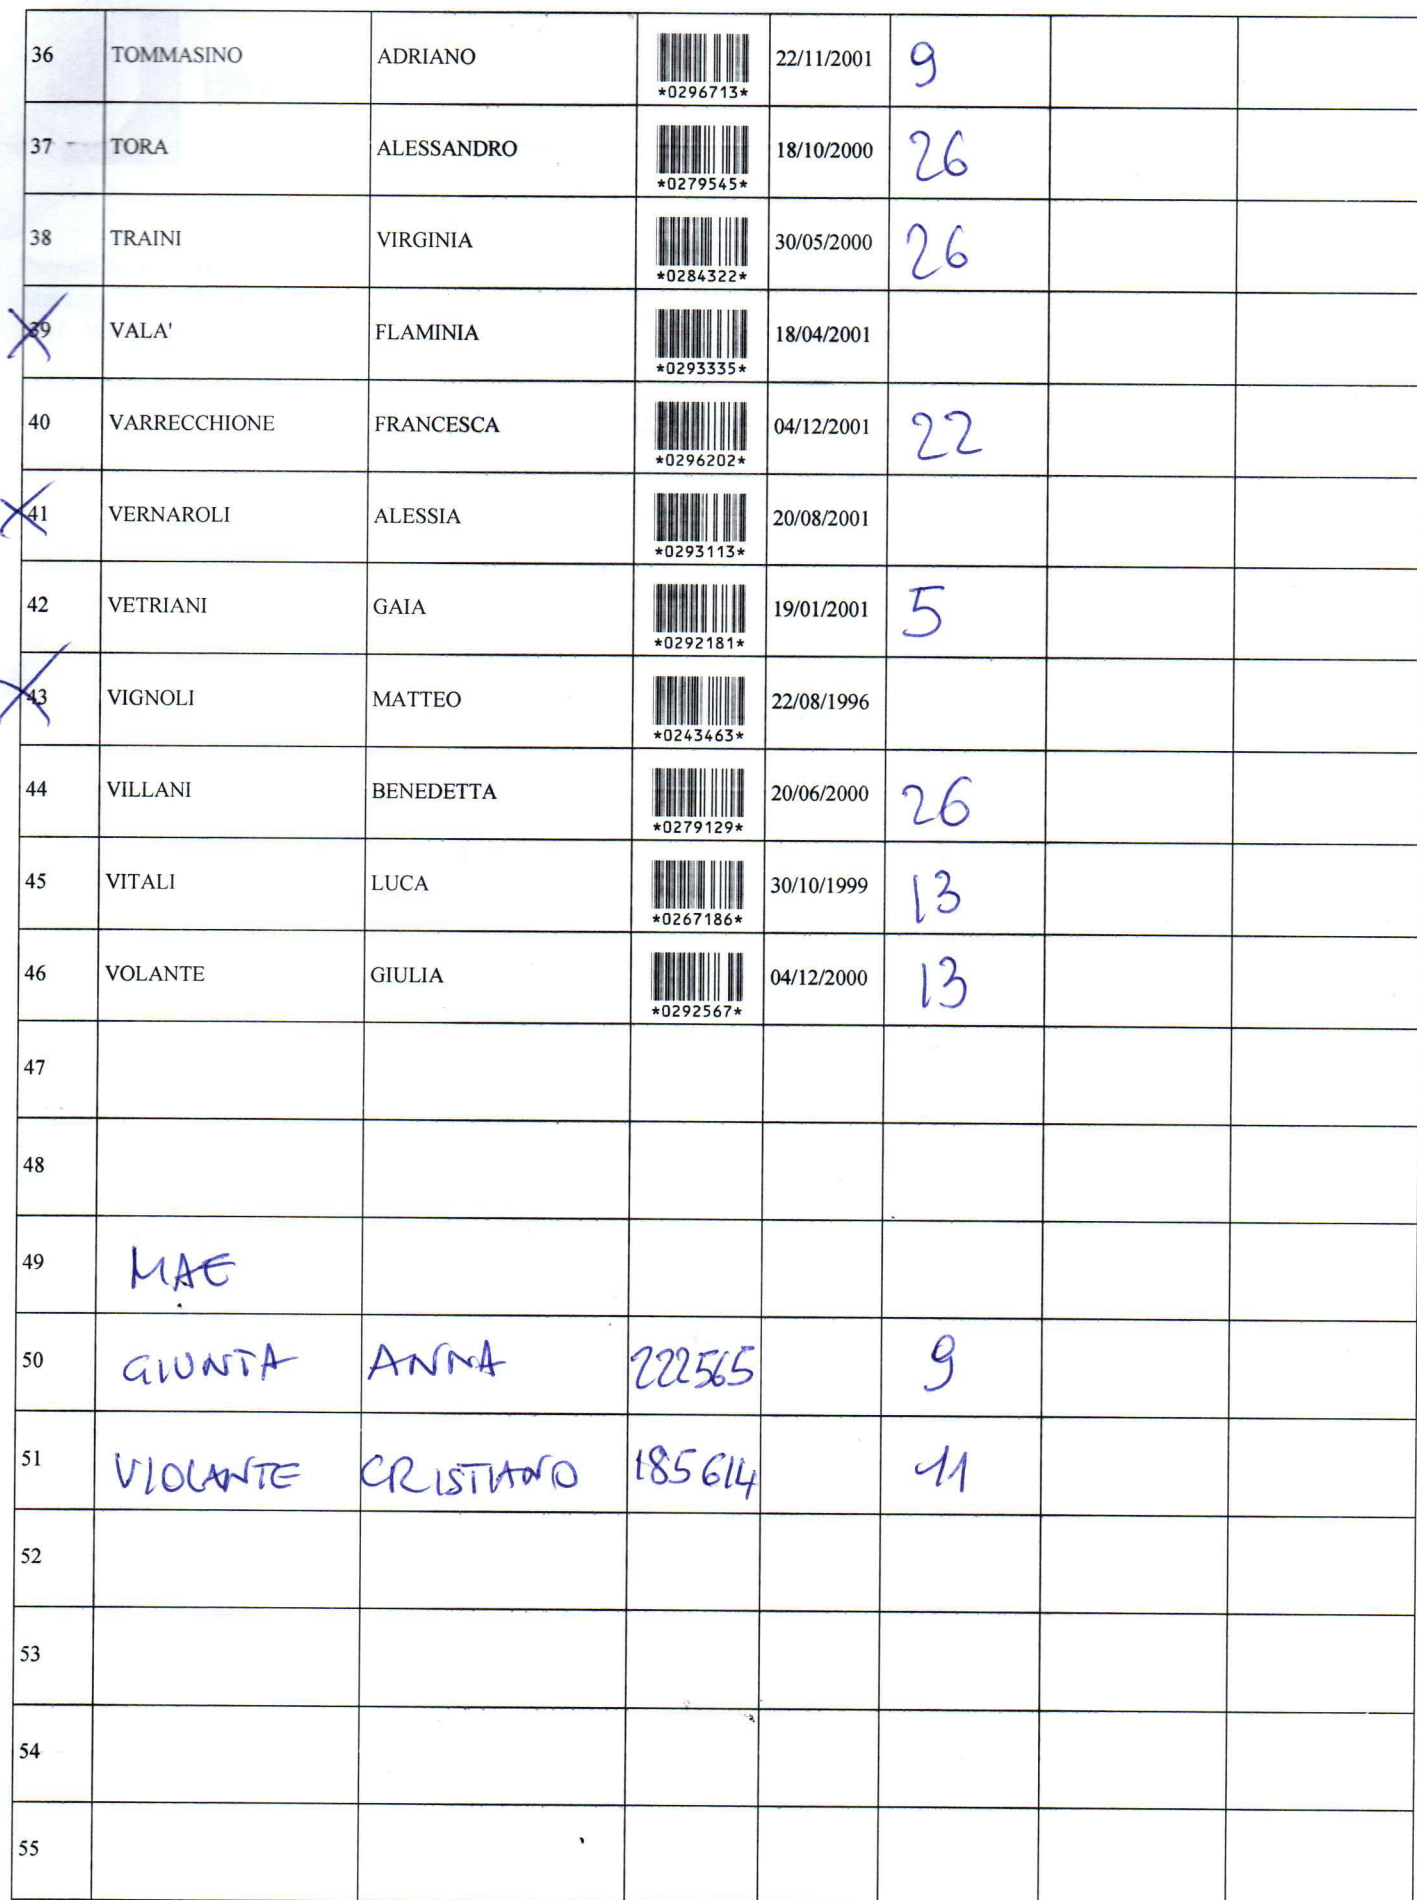 36 TOMMASINO ADRIANO *0296713* 22/11/2001 9
37 TORA ALESSANDRO *0279545* 18/10/2000 26
38 TRAINI VIRGINIA *0284322* 30/05/2000 26
39 VALA' FLAMINIA *0293335* 18/04/2001
40 VARRECCHIONE FRANCESCA *0296202* 04/12/2001 22
41 VERNAROLI ALESSIA *0293113* 20/08/2001
42 VETRIANI GAIA *0292181* 19/01/2001 5
43 VIGNOLI MATTEO *0243463* 22/08/1996
44 VILLANI BENEDETTA *0279129* 20/06/2000 26
45 VITALI LUCA *0267186* 30/10/1999 13
46 VOLANTE GIULIA *0292567* 04/12/2000 13
47
48
49 MAE
50 GIUNTA ANNA 222565 9
51 VIOLANTE CRISTIANO 185614 11
52
53
54
55